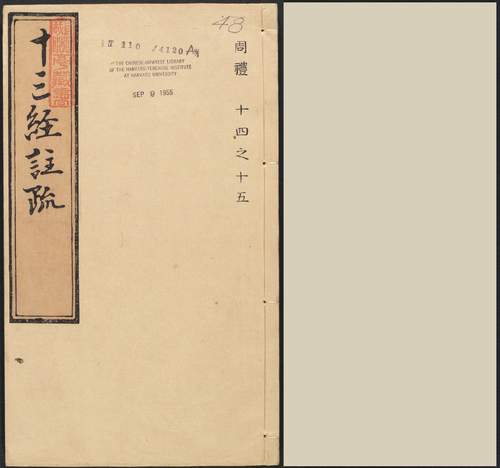 十三経註疏
48
110 /4120A
THE CHINESE-JAPANESE LIBRARY
OF THE HARVARD-YENCHING INSTITUTE
AT HARVARD UNIVERSITY
SEP 9 1955
周禮 十四之十五